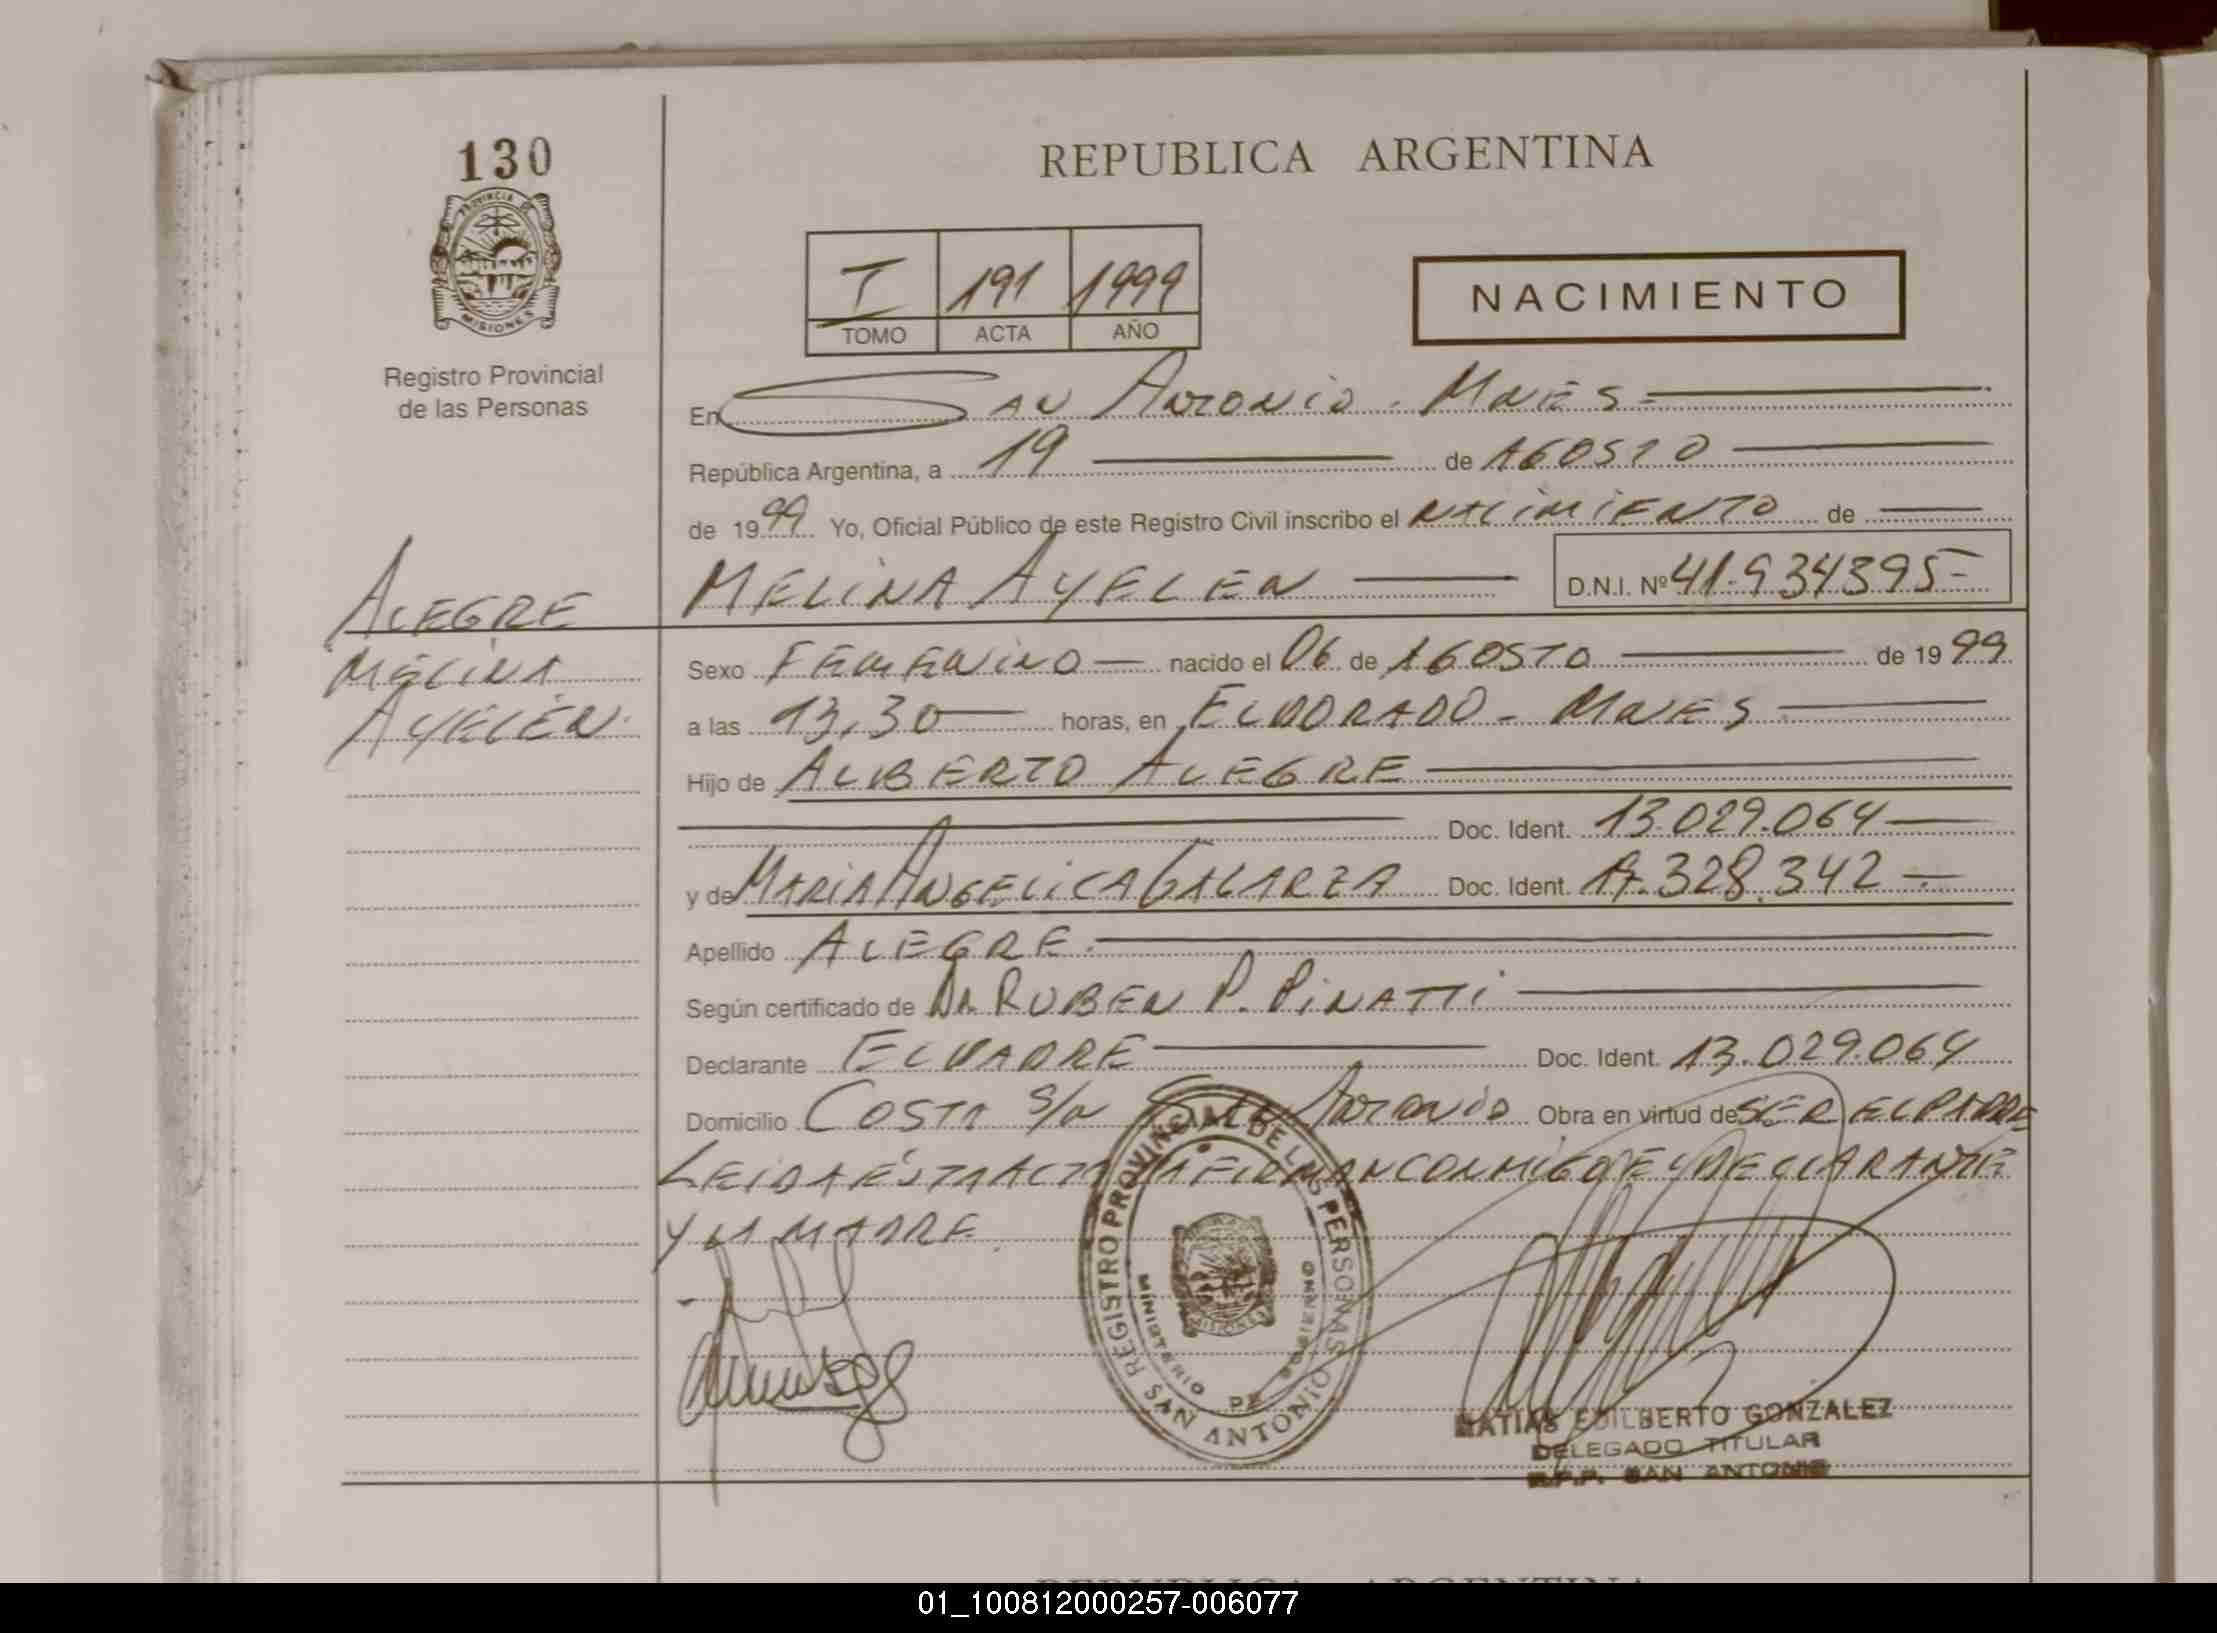 130
PROVINCIA DE
MISIONES
Registro Provincial
de las Personas
REPUBLICA ARGENTINA
I 191 1999
TOMO ACTA AÑO
NACIMIENTO
En SAN ANTONIO - MNES
República Argentina, a 19 de AGOSTO
de 1999 Yo, Oficial Público de este Registro Civil inscribo el NACIMIENTO de
MELINA AYELEN D.N.I. Nº 41.934395
ALEGRE
MELINA
AYELEN
Sexo FEMENINO nacido el 06 de AGOSTO de 1999
a las 13,30 horas, en ELDORADO - MNES
Hijo de ALBERTO ALEGRE
Doc. Ident. 13.029.064
y de MARIA ANGELICA GALARZA Doc. Ident. 17.328.342
Apellido ALEGRE
Según certificado de DR. RUBEN P. PINATTI
Declarante EL PADRE Doc. Ident. 13.029.064
Domicilio COSTA S/N SAN ANTONIO Obra en virtud de SER EL PADRE
LEIDA ESTA ACTA LA FIRMAN CONMIGO EL DECLARANTE
Y LA MADRE.
REGISTRO PROVINCIAL DE LAS PERSONAS
MINISTERIO DE GOBIERNO
MISIONES
SAN ANTONIO
MATIAS EDILBERTO GONZALEZ
DELEGADO TITULAR
R.P.P. SAN ANTONIO
REPUBLICA ARGENTINA
01_100812000257-006077